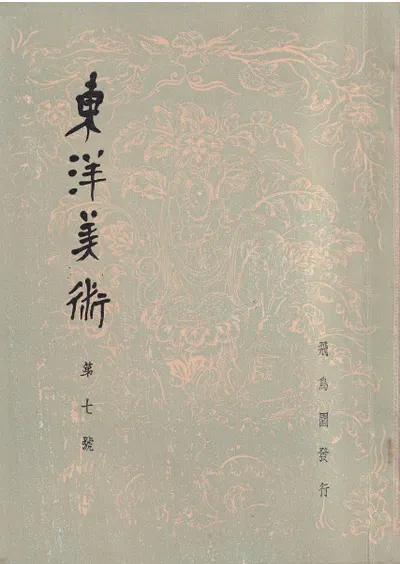 東洋美術
第七號
飛鳥園發行